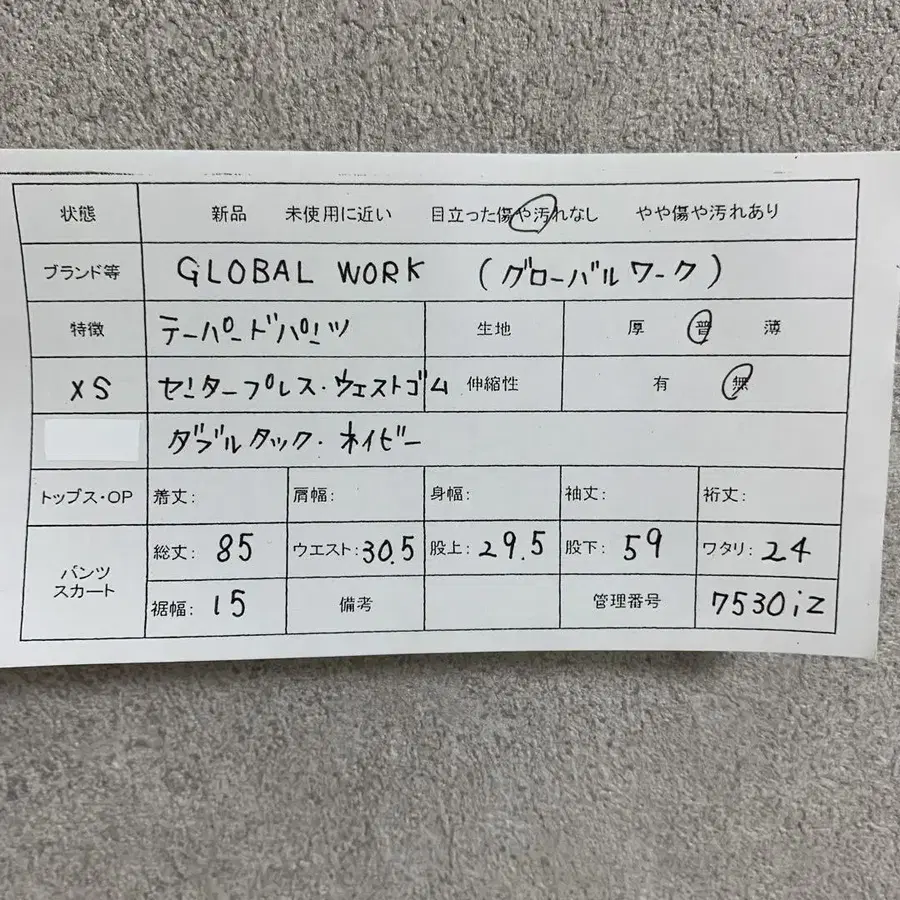 状態 新品 未使用に近い 目立った傷や汚れなし やや傷や汚れあり
ブランド等 GLOBAL WORK (グローバルワーク)
特徴 テーパードパンツ 生地 厚 普 薄
XS センタープレス・ウエストゴム 伸縮性 有 無
ダブルタック・ネイビー
トップス・OP 着丈: 肩幅: 身幅: 袖丈: 裄丈:
パンツ スカート 総丈: 85 ウエスト: 30.5 股上: 29.5 股下: 59 ワタリ: 24
裾幅: 15 備考 管理番号 7530iz